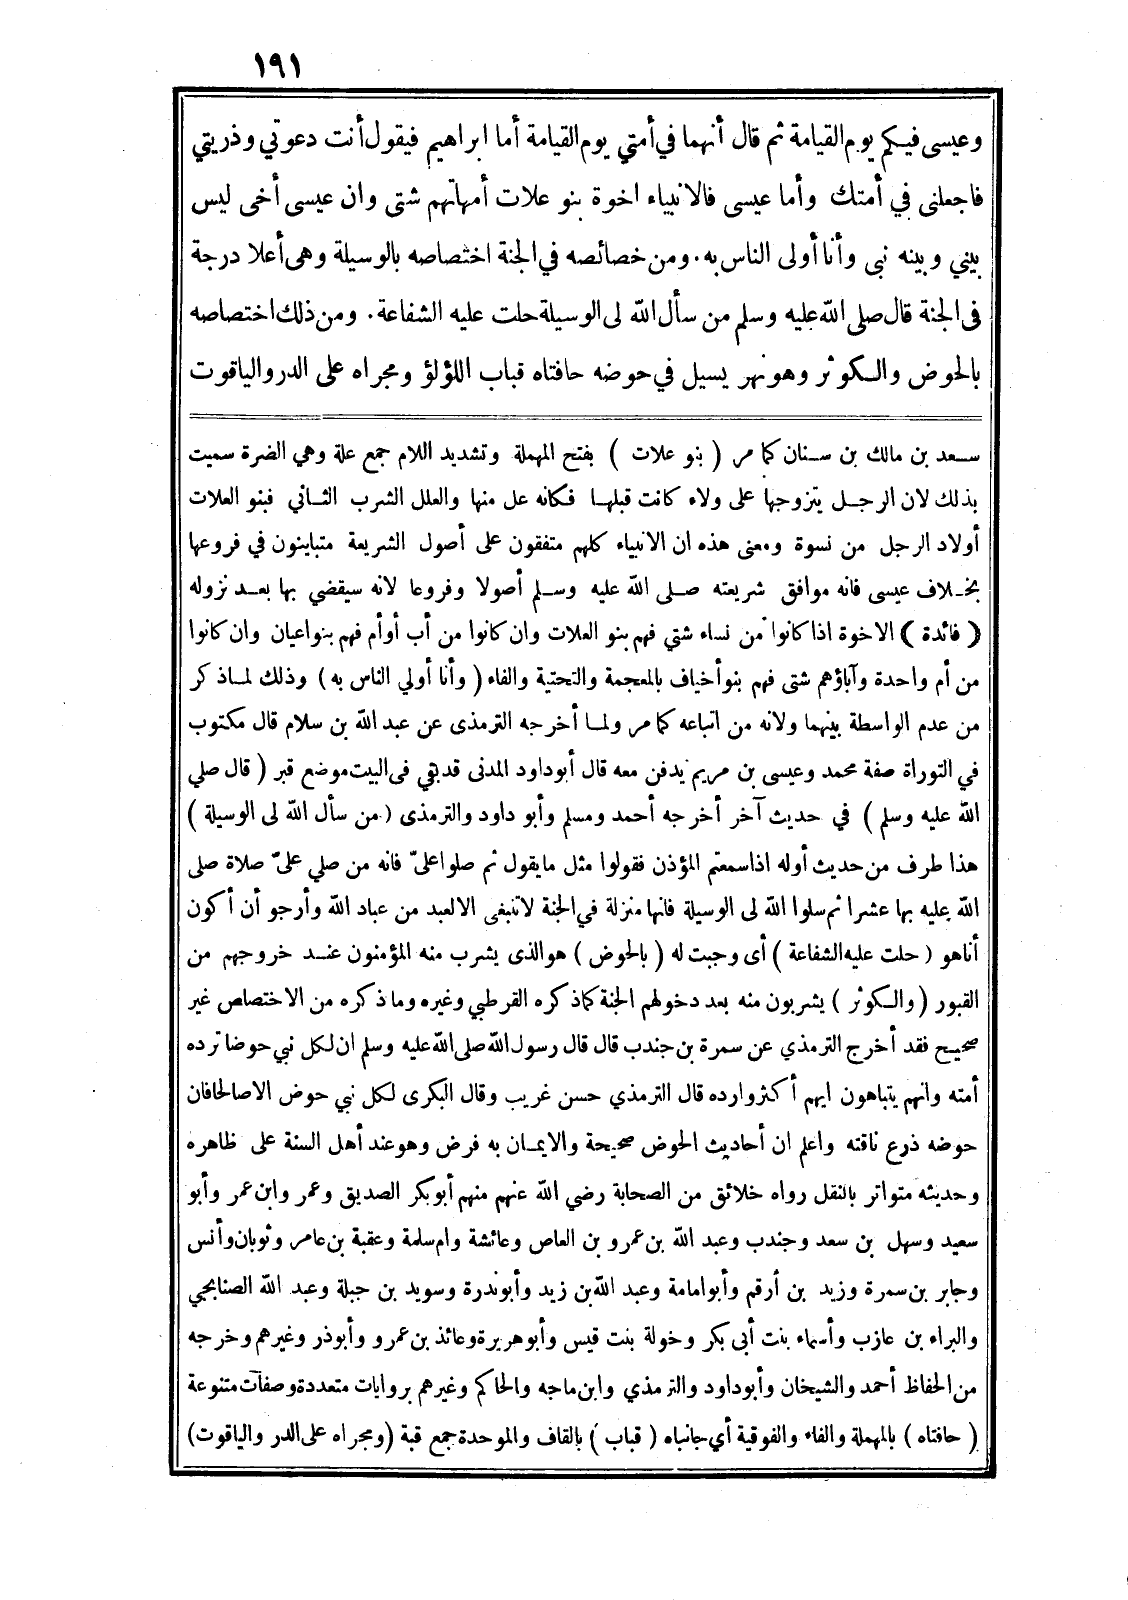 ١٩١
وعيسى فيكم يوم القيامة ثم قال أنهما في أمتي يوم القيامة أما ابراهيم فيقول أنت دعوتي وذريتي
فاجعلنى في أمتك وأما عيسى فالانبياء اخوة بنو علات أمهاتهم شتى وان عيسى أخى ليس
بيني وبينه نبى وأنا أولى الناس به. ومن خصائصه في الجنة اختصاصه بالوسيلة وهى أعلا درجة
فى الجنة قال صلى الله عليه وسلم من سأل الله لى الوسيلة حلت عليه الشفاعة. ومن ذلك اختصاصه
بالحوض والكوثر وهو نهر يسيل في حوضه حافتاه قباب اللؤلؤ ومجراه على الدر والياقوت
سعد بن مالك بن سنان كما مر ( بنو علات ) بفتح المهملة وتشديد اللام جمع علة وهي الضرة سميت
بذلك لان الرجل يتزوجها على ولاء كانت قبلها فكانه عل منها والعلل الشرب الثاني فبنو العلات
أولاد الرجل من نسوة ومعنى هذه ان الانبياء كلهم متفقون على أصول الشريعة متباينون في فروعها
بخلاف عيسى فانه موافق شريعته صلى الله عليه وسلم أصولا وفروعا لانه سيقضي بها بعد نزوله
( فائدة ) الاخوة اذا كانوا من نساء شتي فهم بنو العلات وان كانوا من أب أوأم فهم بنواعيان وان كانوا
من أم واحدة وآباؤهم شتى فهم بنو أخياف بالمعجمة والتحتية والفاء ( وأنا أولي الناس به ) وذلك لما ذكر
من عدم الواسطة بينهما ولانه من اتباعه كما مر ولما أخرجه الترمذى عن عبد الله بن سلام قال مكتوب
في التوراة صفة محمد وعيسى بن مريم يدفن معه قال أبوداود المدنى قد بقي فى البيت موضع قبر ( قال صلي
الله عليه وسلم ) في حديث آخر أخرجه أحمد ومسلم وأبو داود والترمذى ( من سأل الله لى الوسيلة )
هذا طرف من حديث أوله اذا سمعتم المؤذن فقولوا مثل ما يقول ثم صلوا علىّ فانه من صلي علىّ صلاة صلى
الله عليه بها عشرا ثم سلوا الله لى الوسيلة فانها منزلة في الجنة لا تنبغى الا لعبد من عباد الله وأرجو أن أكون
أنا هو ( حلت عليه الشفاعة ) أى وجبت له ( بالحوض ) هو الذى يشرب منه المؤمنون عند خروجهم من
القبور ( والكوثر ) يشربون منه بعد دخولهم الجنة كما ذكره القرطبي وغيره وما ذكره من الاختصاص غير
صحيح فقد أخرج الترمذي عن سمرة بن جندب قال قال رسول الله صلى الله عليه وسلم ان لكل نبي حوضا ترده
أمته وانهم يتباهون ايهم أكثر وارده قال الترمذي حسن غريب وقال البكرى لكل نبي حوض الا صالحا فان
حوضه ذرع ناقته واعلم ان أحاديث الحوض صحيحة والايمان به فرض وهو عند أهل السنة على ظاهره
وحديثه متواتر بالنقل رواه خلائق من الصحابة رضي الله عنهم منهم أبو بكر الصديق وعمر وابن عمر وأبو
سعيد وسهل بن سعد وجندب وعبد الله بن عمرو بن العاص وعائشة وام سلمة وعقبة بن عامر وثوبان وأنس
وجابر بن سمرة وزيد بن أرقم وأبو امامة وعبد الله بن زيد وأبو ندرة وسويد بن جبلة وعبد الله الصنابحي
والبراء بن عازب وأسماء بنت أبى بكر وخولة بنت قيس وأبو هريرة وعائذ بن عمرو وأبو ذر وغيرهم وخرجه
من الحفاظ أحمد والشيخان وأبوداود والترمذي وابن ماجه والحاكم وغيرهم بروايات متعددة وصفات متنوعة
( حافتاه ) بالمهملة والفاء والفوقية أي جانباه ( قباب ) بالقاف والموحدة جمع قبة ( ومجراه على الدر والياقوت )